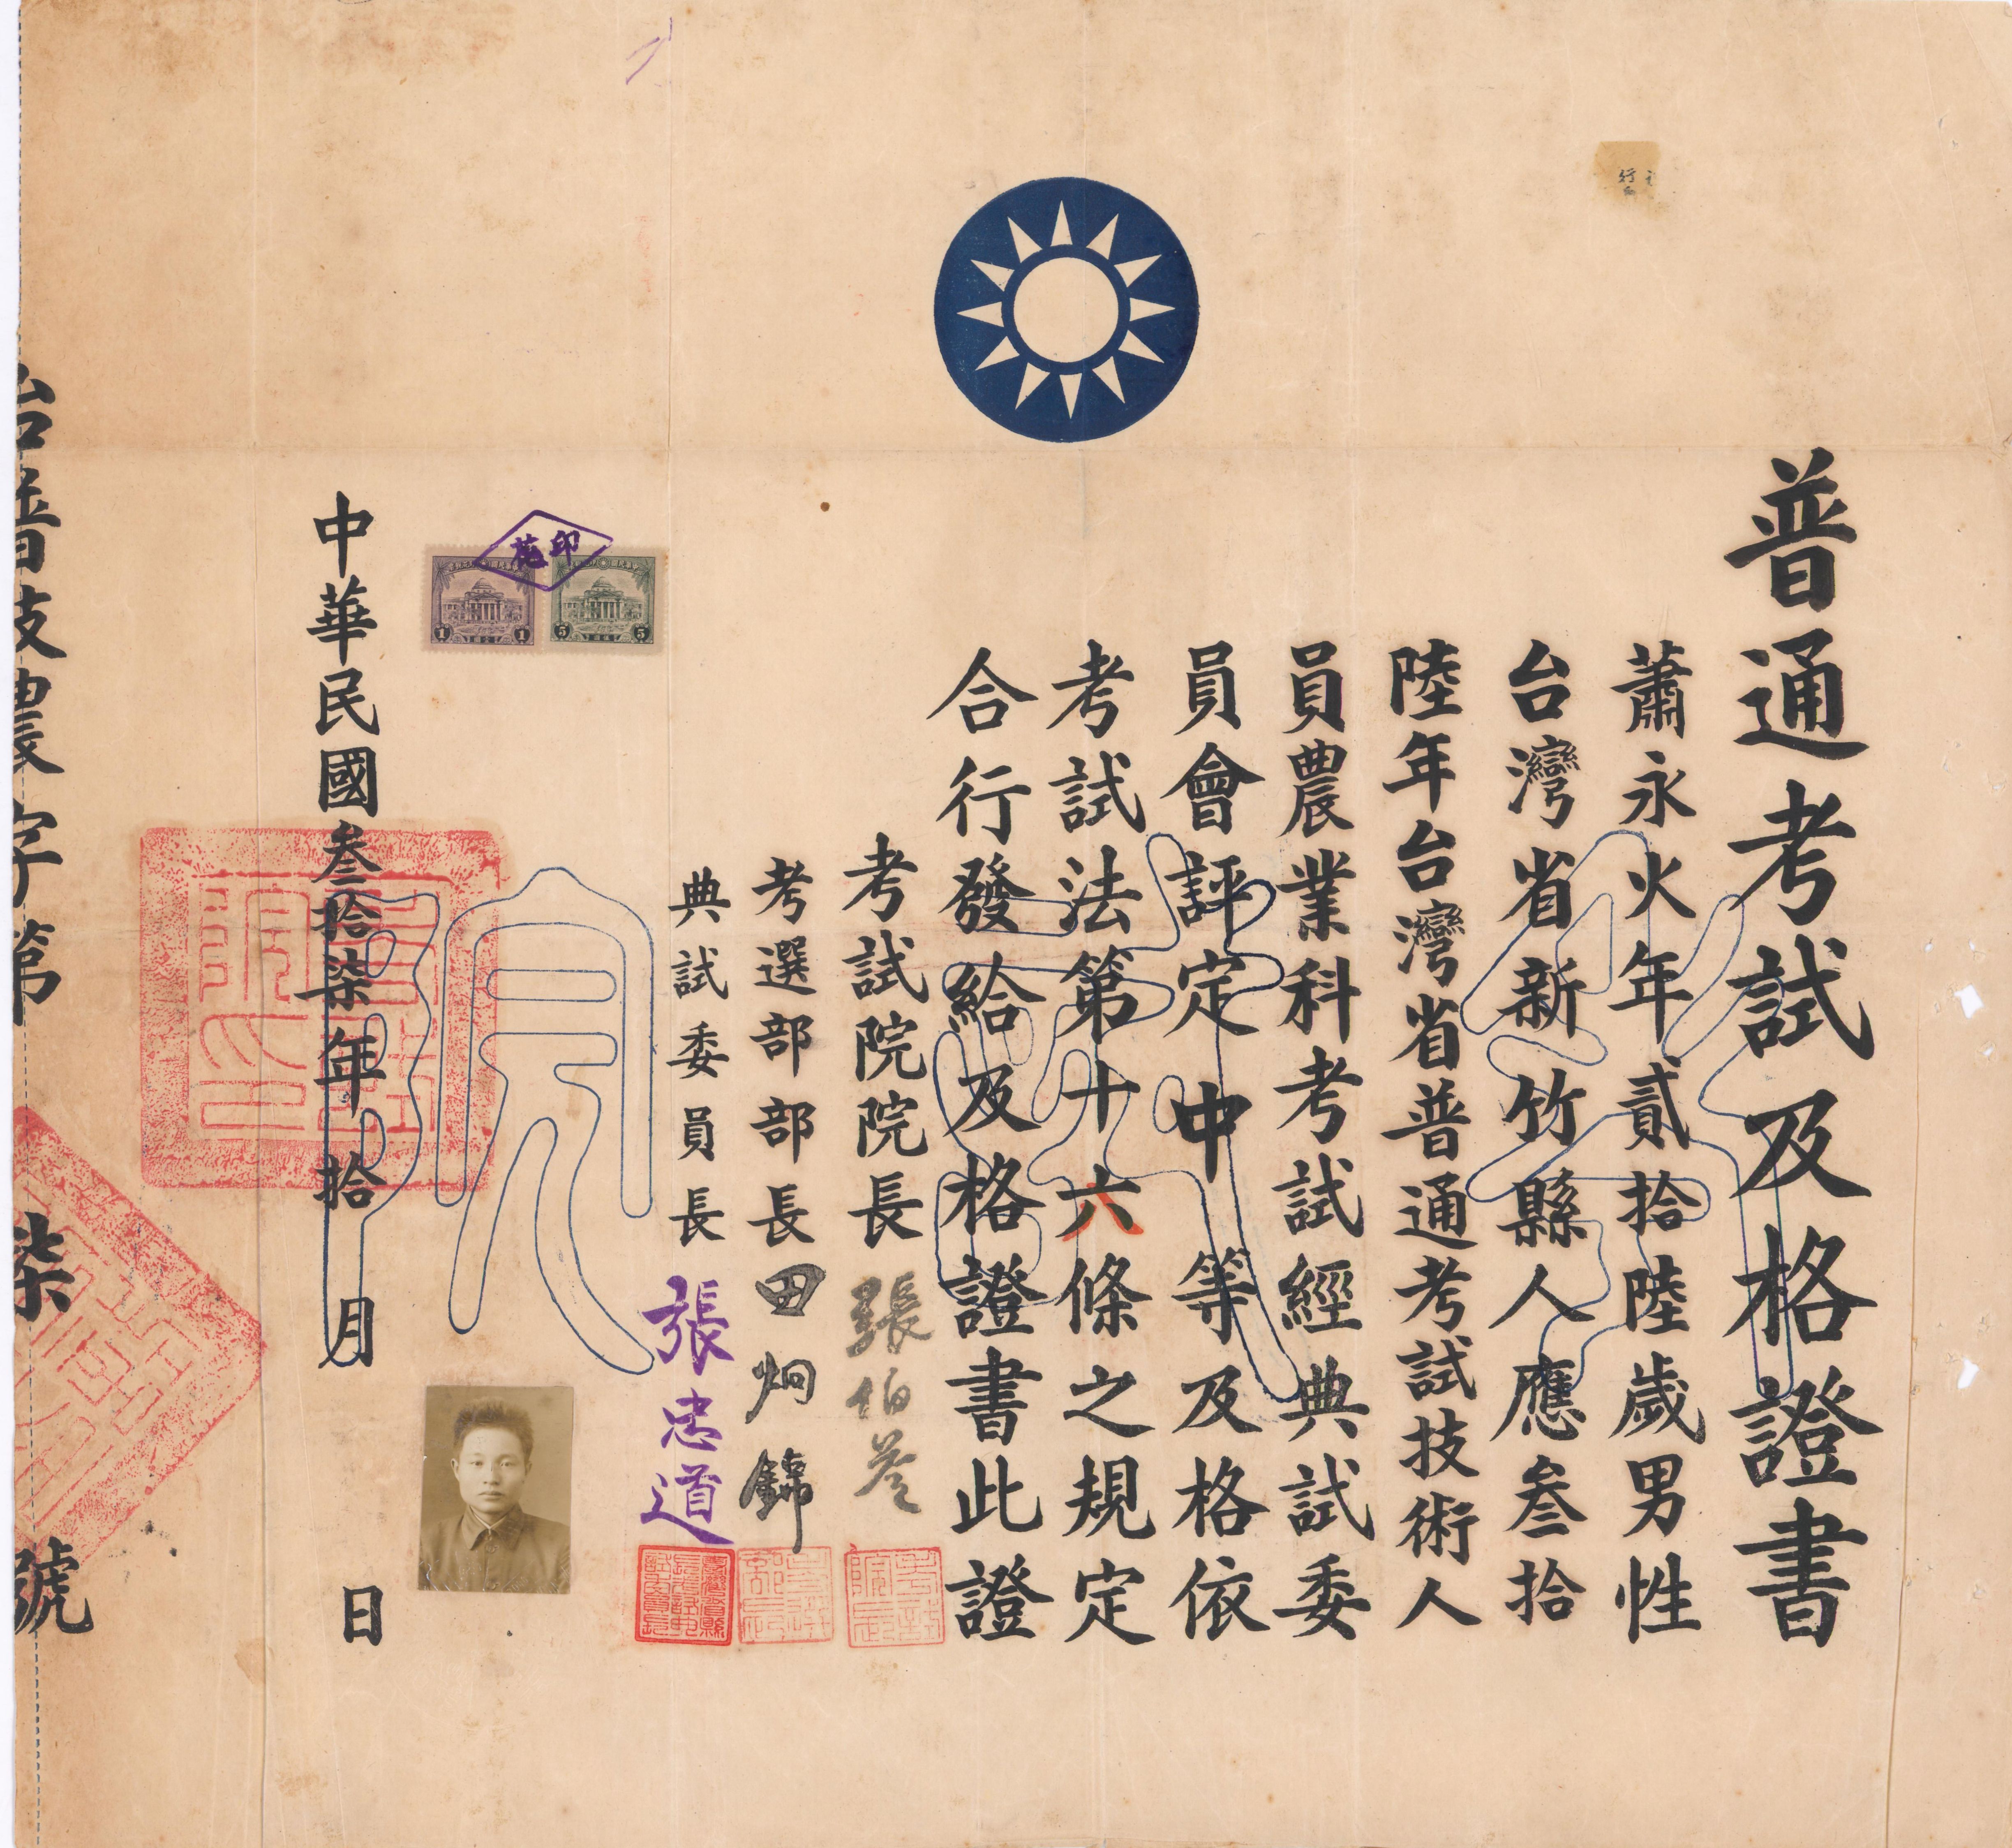 普通考試及格證書
蕭永火年貳拾陸歲男性
台灣省新竹縣人應叁拾
陸年台灣省普通考試技術人
員農業科考試經典試委
員會評定中等及格依
考試法第十六條之規定
合行發給及格證書此證
考試院院長 張伯苓
考選部部長 田炯錦
典試委員長 張忠道
印花
1 1
5 5
中華民國叁拾柒年拾月 日
台普技農字第 柒 號